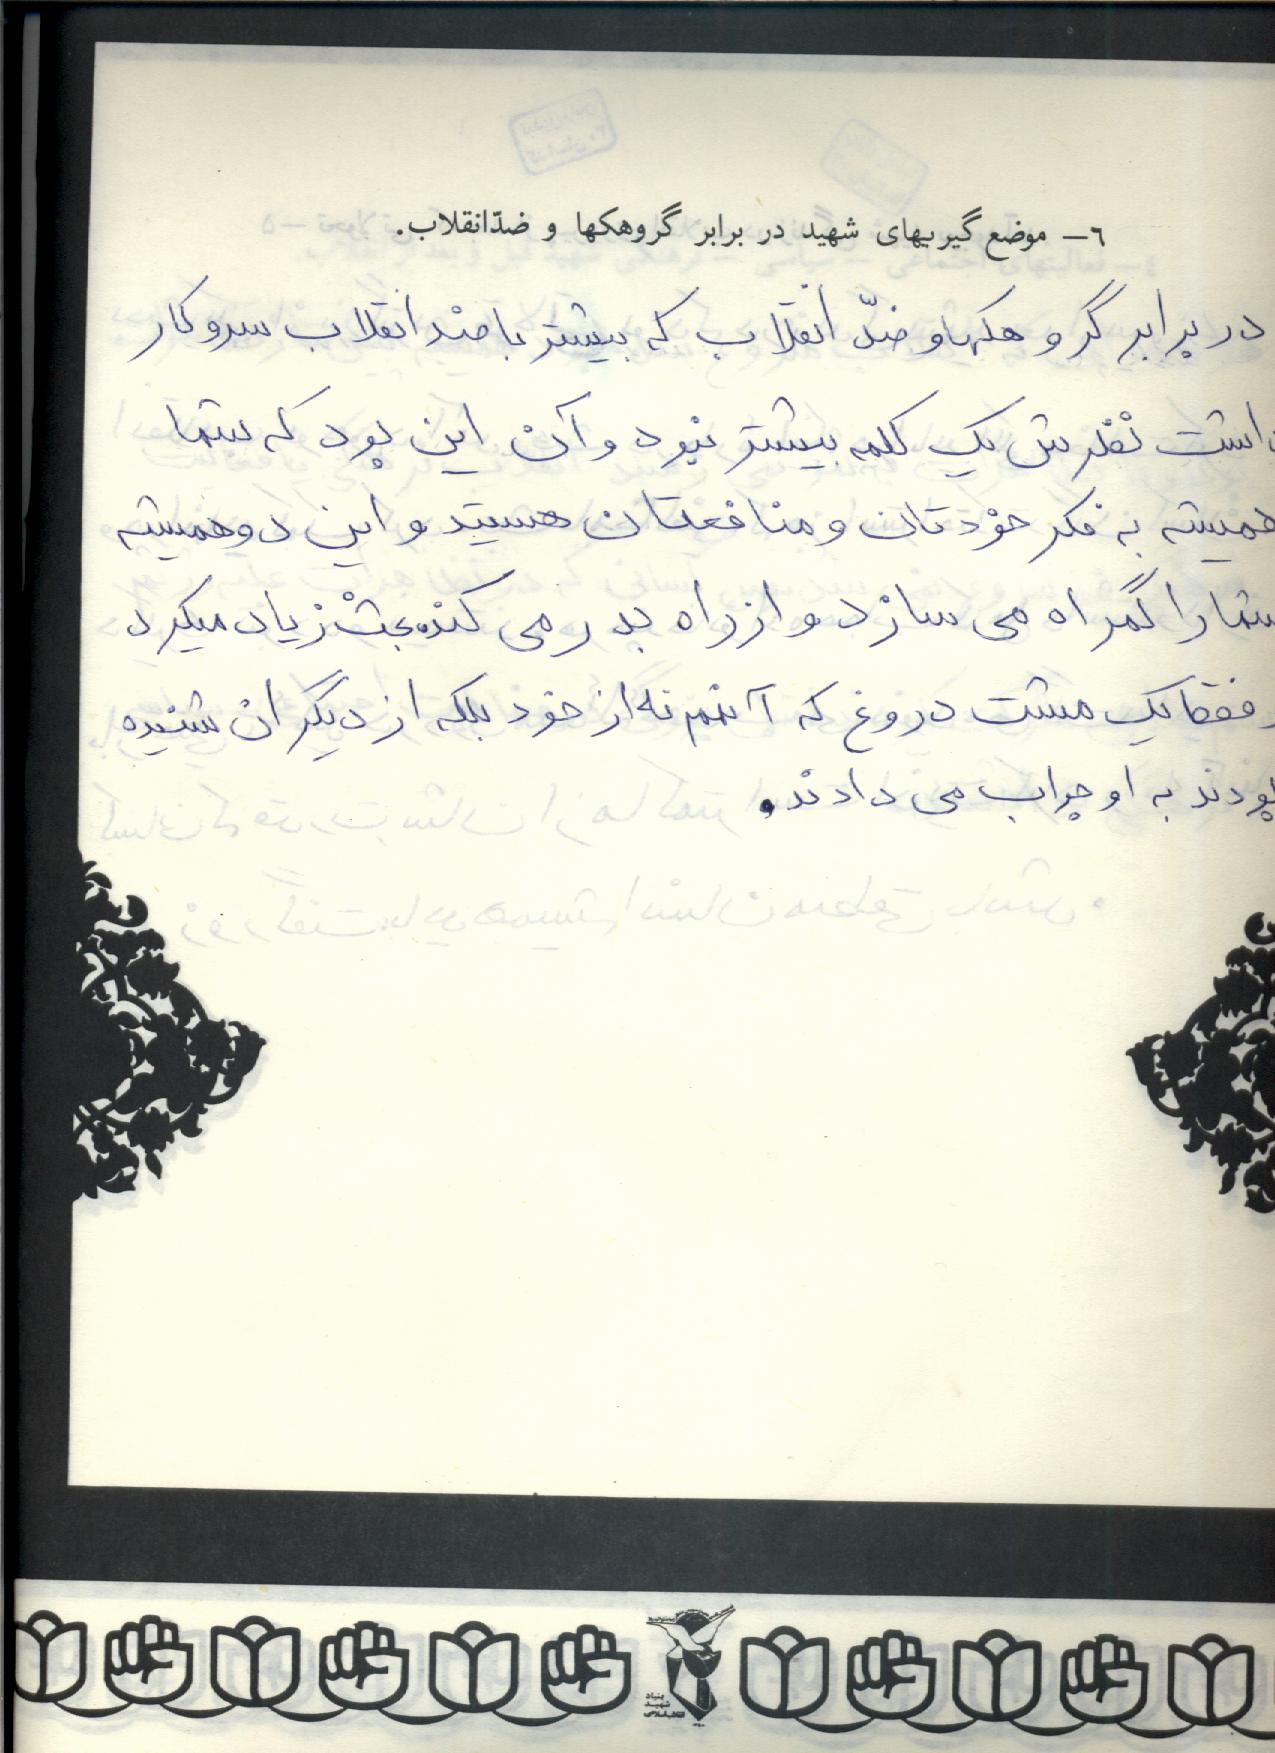 ٦– موضع گیریهای شهید در برابر گروهکها و ضدّانقلاب.
در برابر گروهکها و ضدّ انقلاب که بیشتر با ضد انقلاب سروکار
داشت نظرش یک کلمه بیشتر نبود و آن این بود که شما
همیشه به فکر خودتان و منافعتان هستید و این دو همیشه
شما را گمراه می سازد و از راه بدر می کند، بحث زیاد میکرد
رفقا یک مشت دروغ که آنهم نه از خود بلکه از دیگران شنیده
بودند به او جواب می دادند.
بنیاد
شهید
انقلاب اسلامی